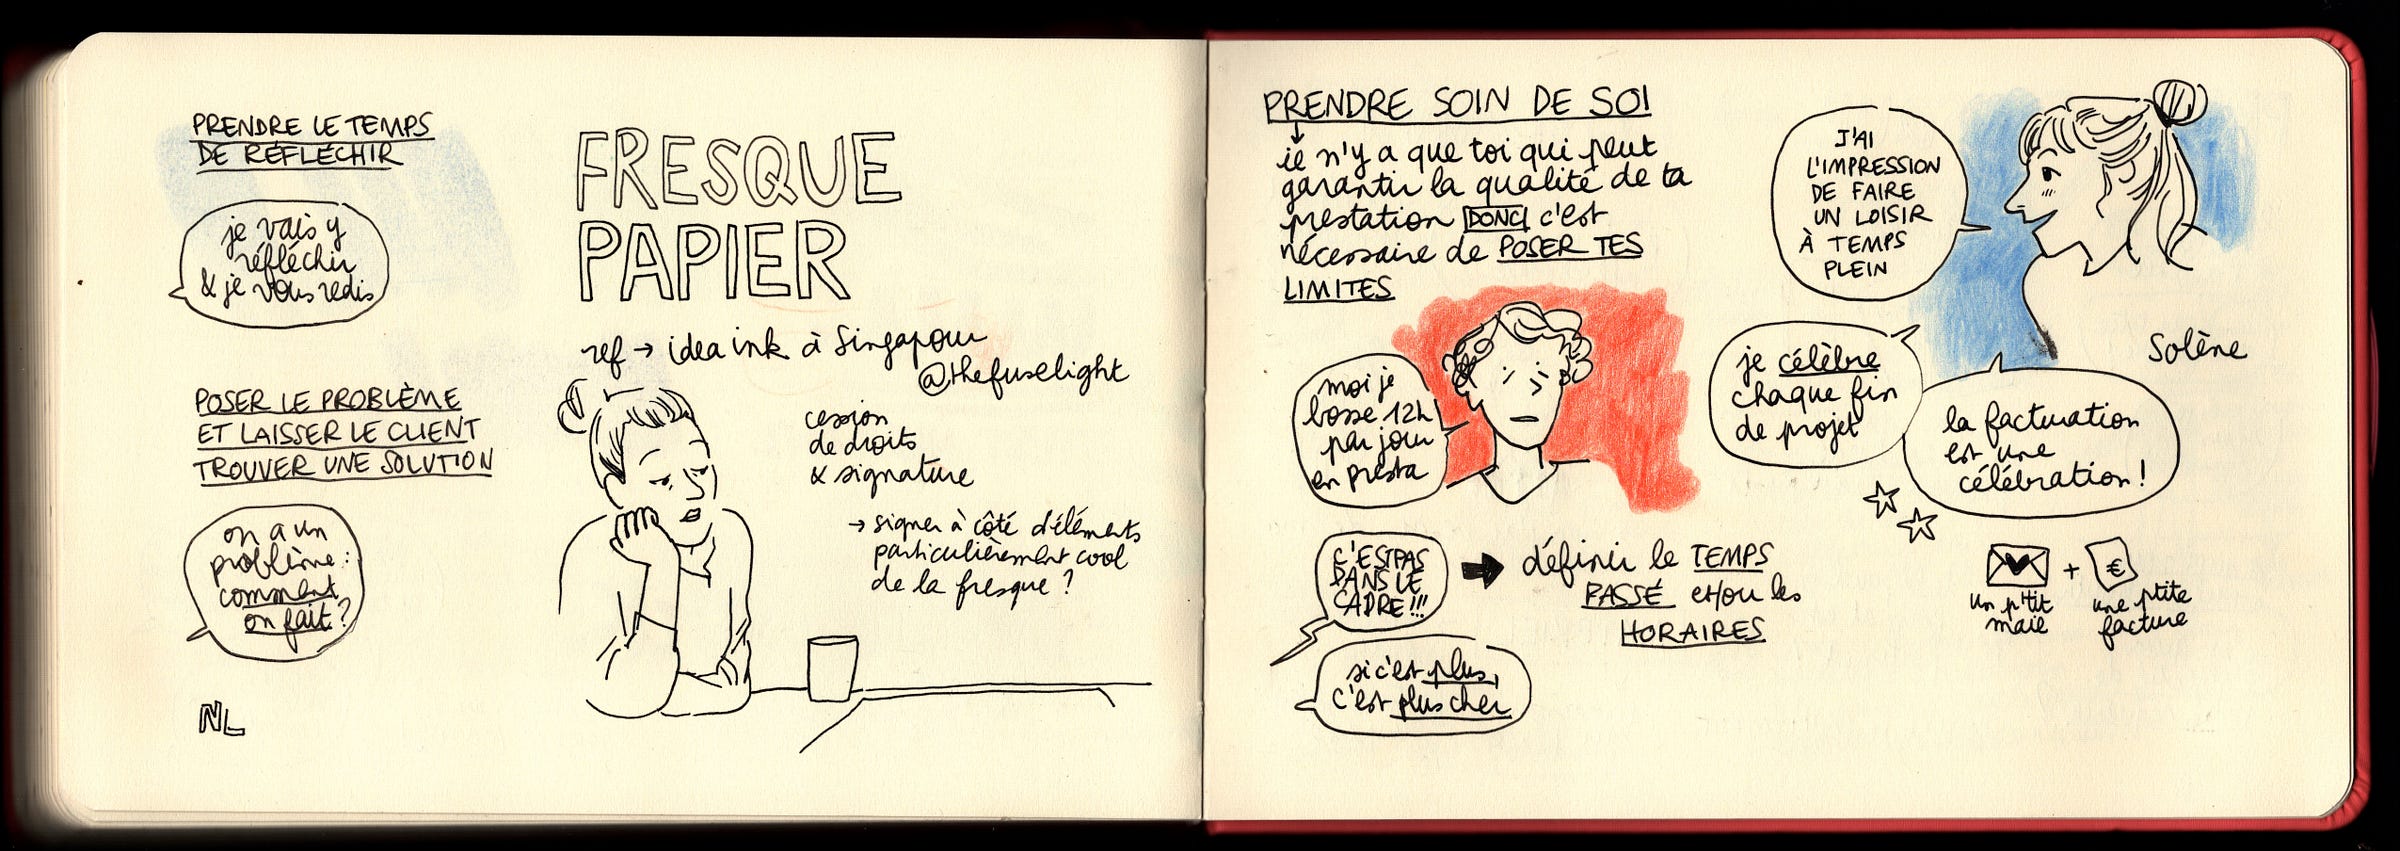 PRENDRE LE TEMPS
DE RÉFLÉCHIR
je vais y
réfléchir
& je vous redis
POSER LE PROBLÈME
ET LAISSER LE CLIENT
TROUVER UNE SOLUTION
on a un
problème :
comment
on fait ?
NL
FRESQUE
PAPIER
ref → idea ink à Singapour
@thefuselight
cession
de droits
& signature
→ signer à côté d'éléments
particulièrement cool
de la fresque ?
PRENDRE SOIN DE SOI
↓
ie n'y a que toi qui peut
garantir la qualité de ta
prestation DONC c'est
nécessaire de POSER TES
LIMITES
moi je
bosse 12h
par jour
en presta
C'EST PAS
DANS LE
CADRE !!!
→ définir le TEMPS
PASSÉ et/ou les
HORAIRES
si c'est plus,
c'est plus cher
J'AI
L'IMPRESSION
DE FAIRE
UN LOISIR
À TEMPS
PLEIN
Solène
je célèbre
chaque fin
de projet
la facturation
est une
célébration !
+ €
un p'tit
maie
une ptite
facture